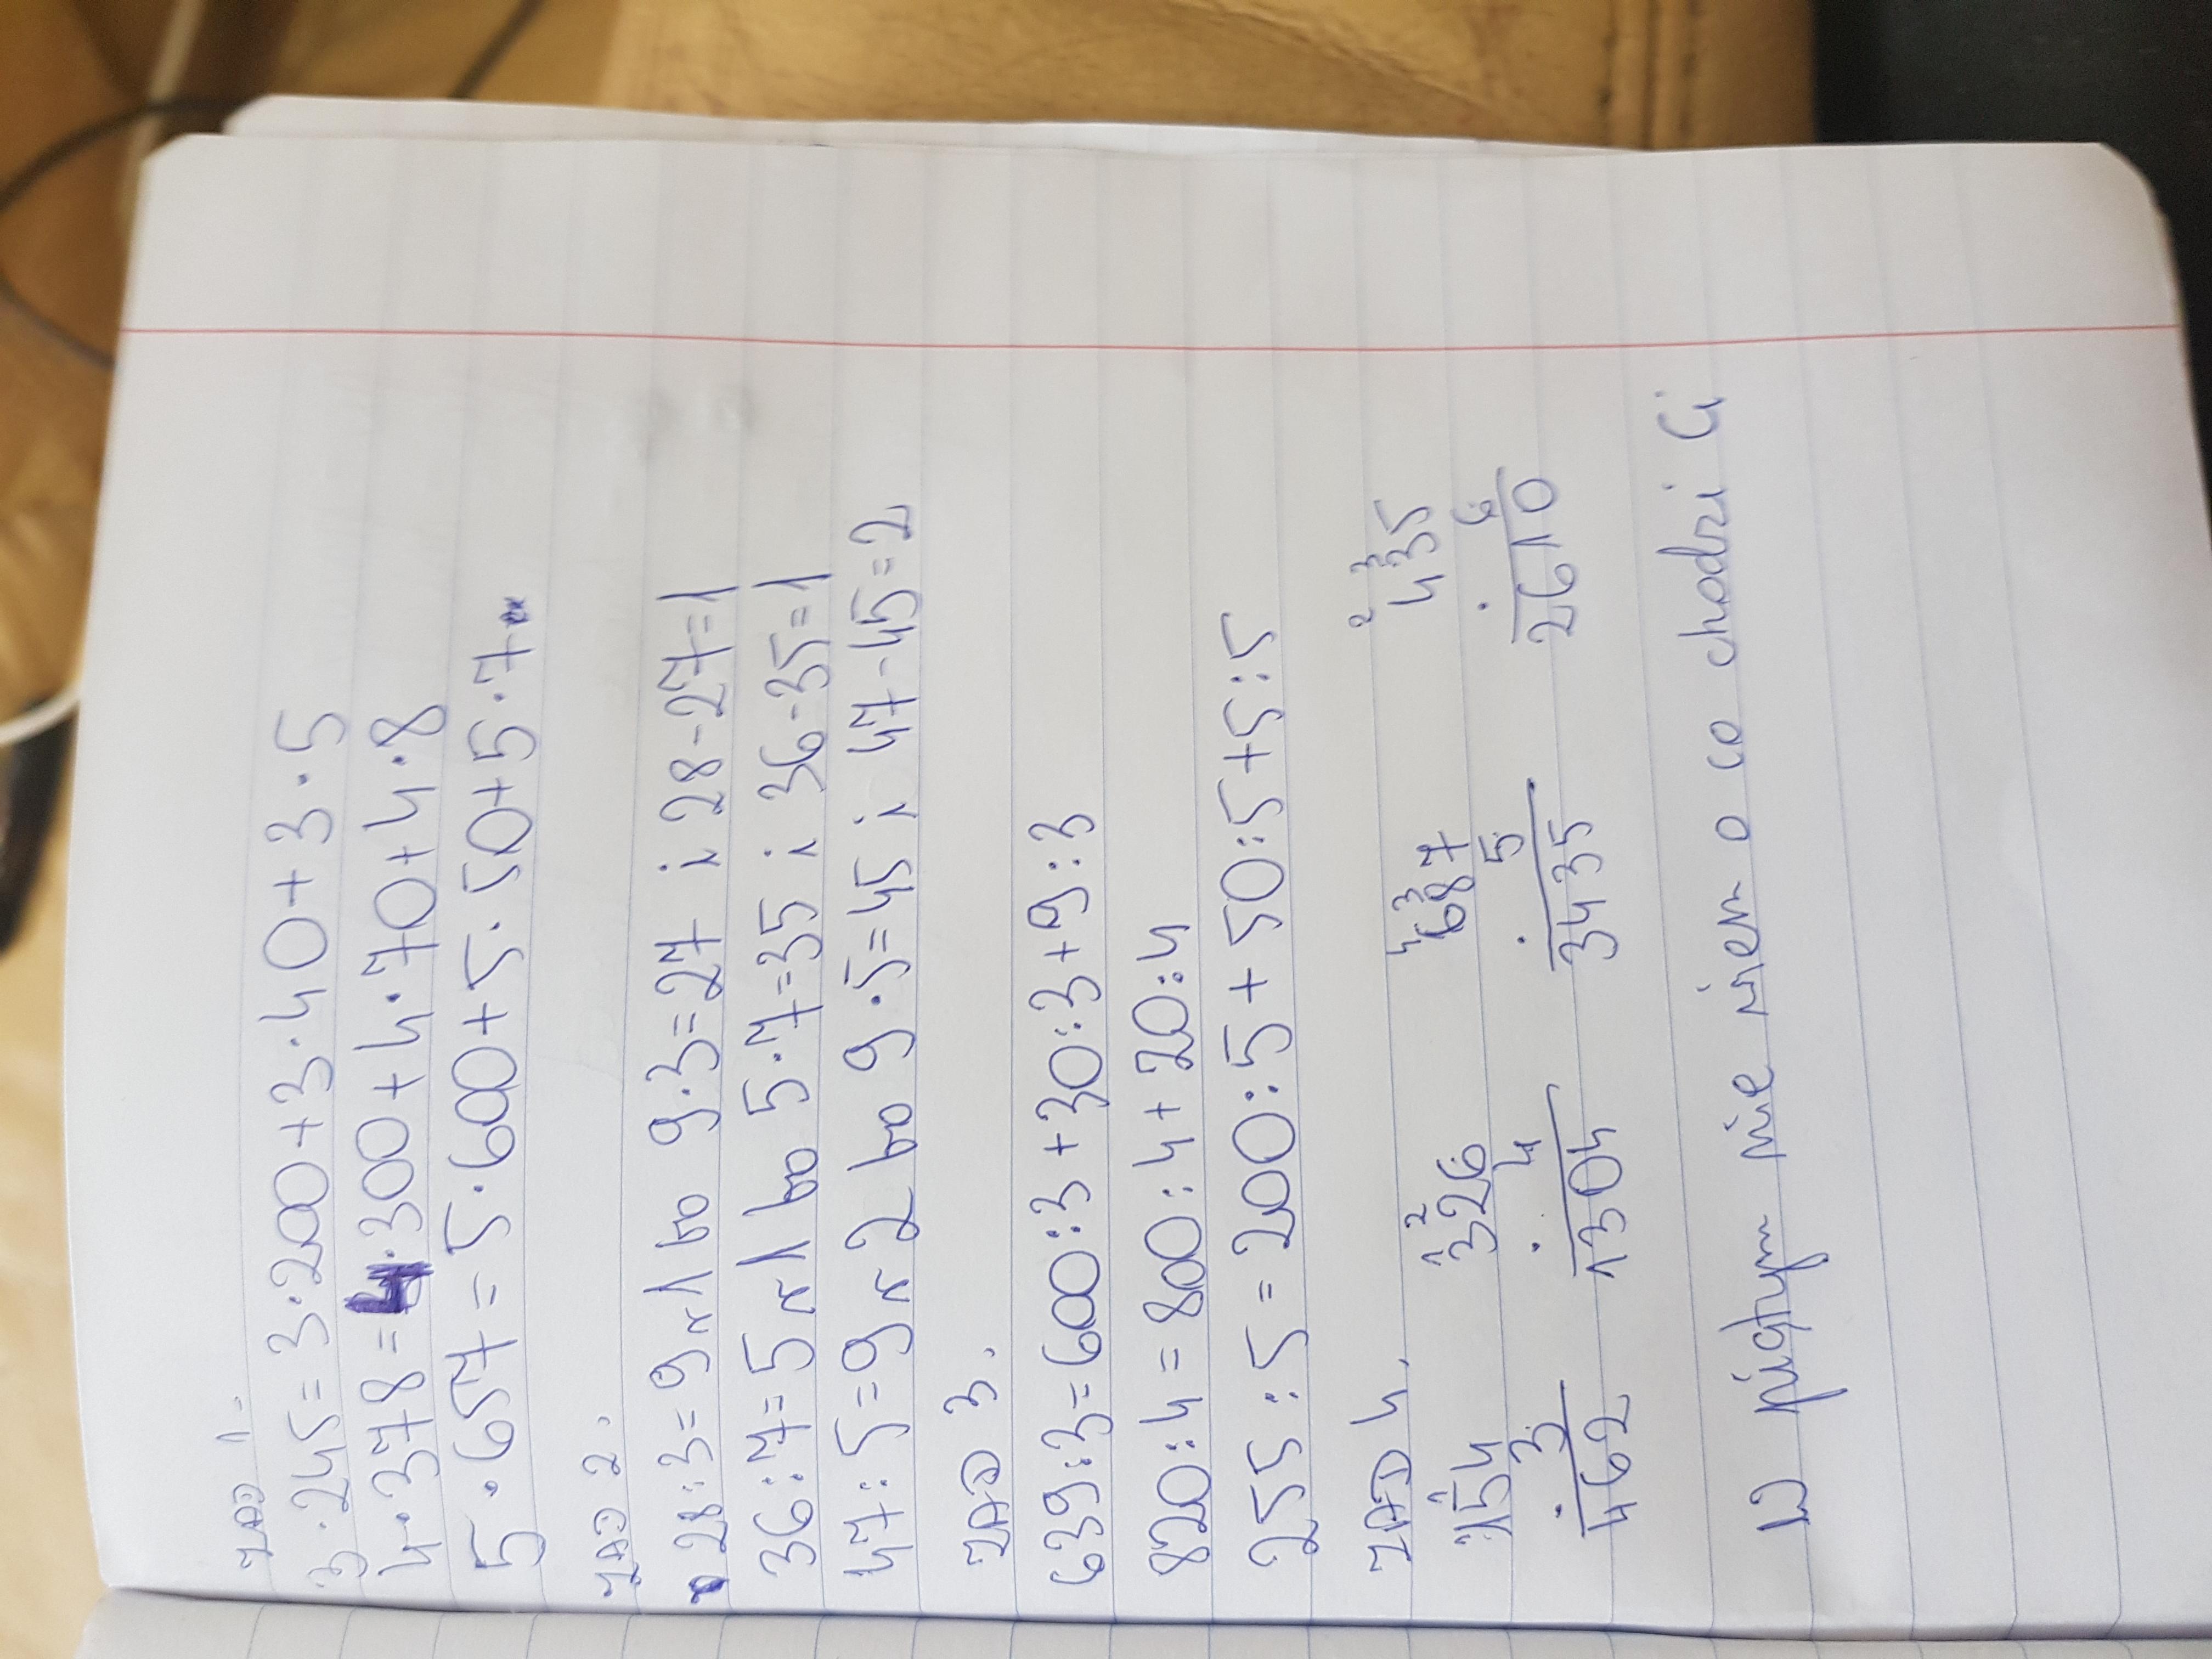 ZAD 1.
3·245=3·200+3·40+3·5
4·378=4·300+4·70+4·8
5·657=5·600+5·50+5·7
ZAD 2.
28:3=9 r 1 bo 9·3=27 i 28-27=1
36:7=5 r 1 bo 5·7=35 i 36-35=1
47:5=9 r 2 bo 9·5=45 i 47-45=2
ZAD 3.
639:3=600:3+30:3+9:3
820:4=800:4+20:4
255:5=200:5+50:5+5:5
ZAD 4.
1 1 1 2 4 3 2 3 3
154 326 687 435
· 3 · 4 · 5 · 6
462 1304 3435 2610
W piątym nie wiem o co chodzi Ci